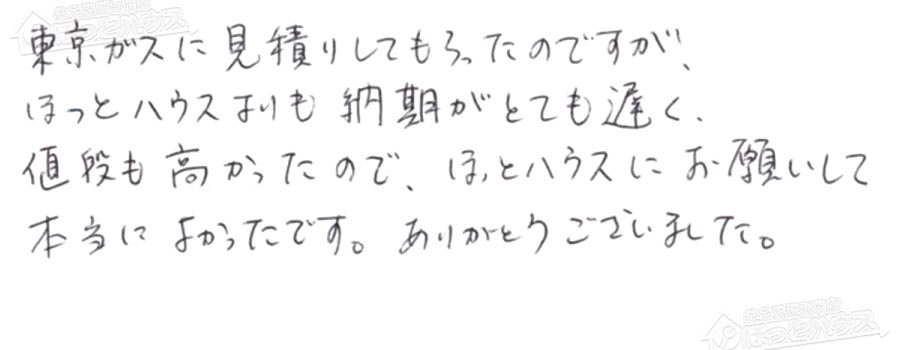 東京ガスに見積りしてもらったのですが、
ほっとハウスよりも納期がとても遅く、
値段も高かったので、ほっとハウスにお願いして
本当によかったです。ありがとうございました。
ほっとハウス